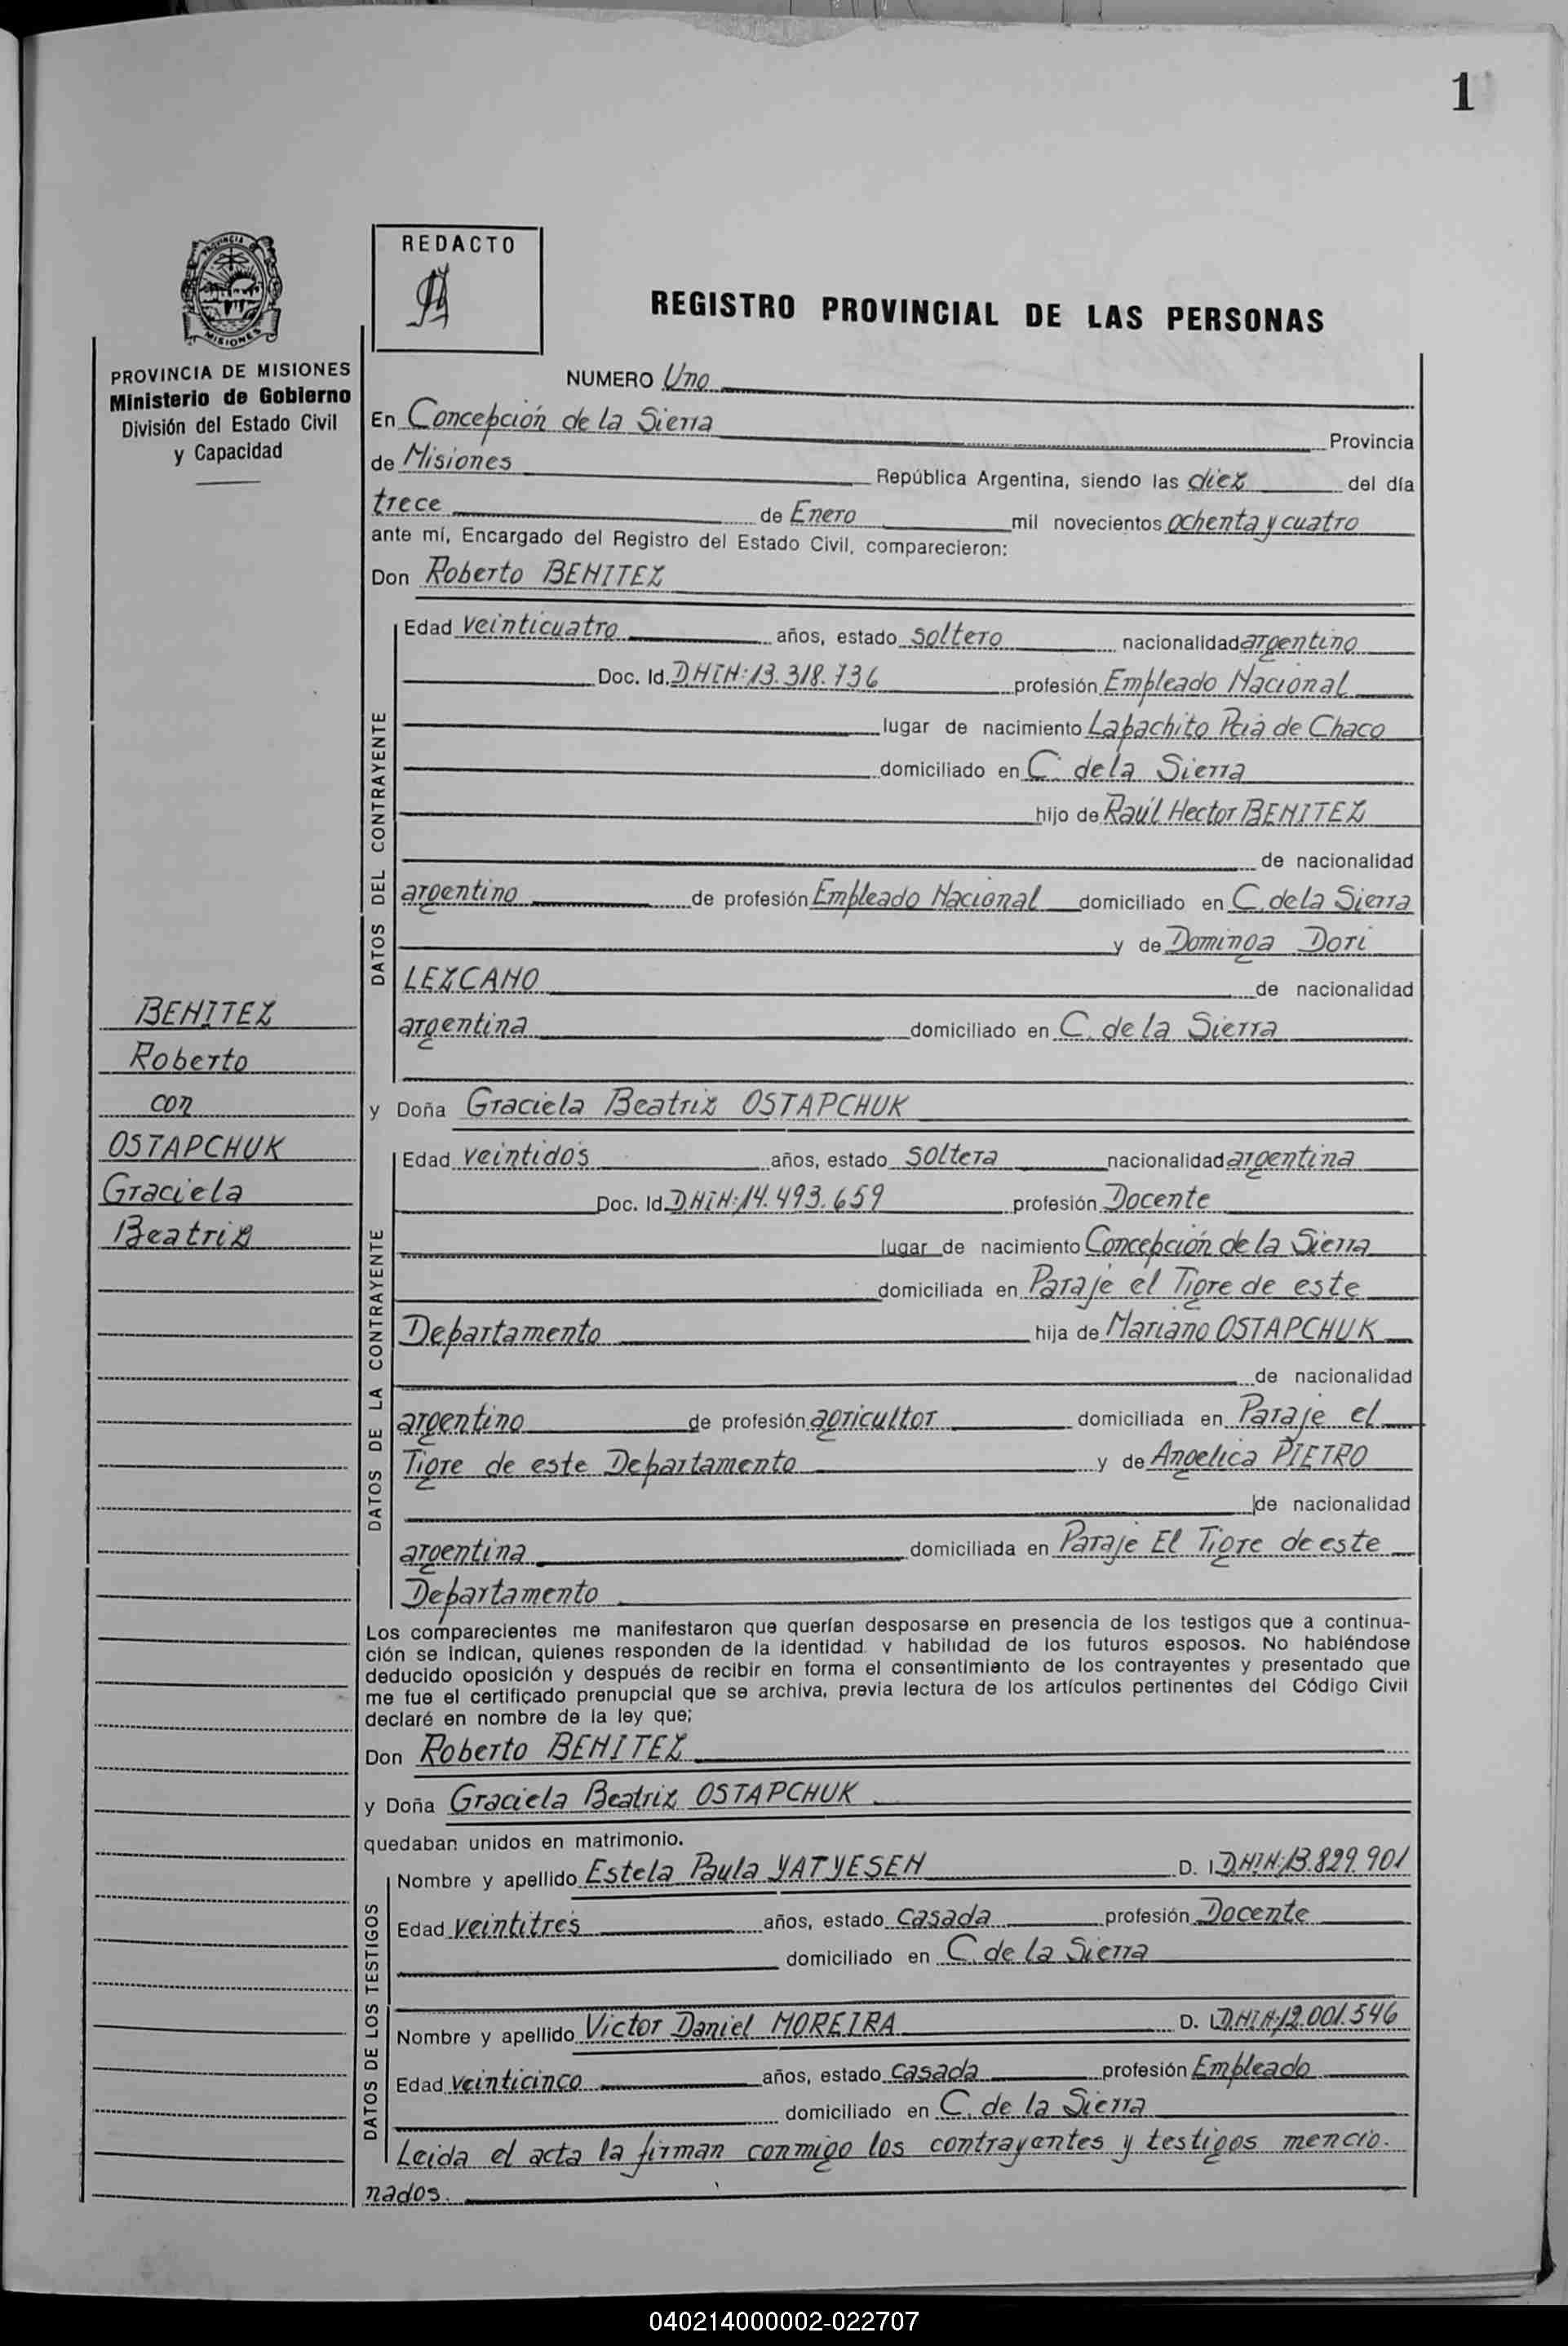 1
REDACTO
REGISTRO PROVINCIAL DE LAS PERSONAS
PROVINCIA DE MISIONES
Ministerio de Gobierno
División del Estado Civil
y Capacidad
NUMERO Uno
En Concepción de la Sierra Provincia
de Misiones República Argentina, siendo las diez del día
trece de Enero mil novecientos ochenta y cuatro
ante mí, Encargado del Registro del Estado Civil, comparecieron:
Don Roberto BENITEZ
DATOS DEL CONTRAYENTE
Edad veinticuatro años, estado soltero nacionalidad argentino
Doc. Id. DNIN:13.318.736 profesión Empleado Nacional
lugar de nacimiento Lapachito Pcia de Chaco
domiciliado en C. de la Sierra
hijo de Raúl Hector BENITEZ
de nacionalidad
argentino de profesión Empleado Nacional domiciliado en C. de la Sierra
y de Dominga Dori
LEZCANO de nacionalidad
argentina domiciliado en C. de la Sierra
BENITEZ
Roberto
con
OSTAPCHUK
Graciela
Beatriz
y Doña Graciela Beatriz OSTAPCHUK
DATOS DE LA CONTRAYENTE
Edad veintidós años, estado soltera nacionalidad argentina
Doc. Id. DNIN:14.493.659 profesión Docente
lugar de nacimiento Concepción de la Sierra
domiciliada en Paraje el Tigre de este
Departamento hija de Mariano OSTAPCHUK
de nacionalidad
argentino de profesión agricultor domiciliada en Paraje el
Tigre de este Departamento y de Angelica PIETRO
de nacionalidad
argentina domiciliada en Paraje El Tigre de este
Departamento
Los comparecientes me manifestaron que querían desposarse en presencia de los testigos que a continua-
ción se indican, quienes responden de la identidad y habilidad de los futuros esposos. No habiéndose
deducido oposición y después de recibir en forma el consentimiento de los contrayentes y presentado que
me fue el certificado prenupcial que se archiva, previa lectura de los artículos pertinentes del Código Civil
declaré en nombre de la ley que;
Don Roberto BENITEZ
y Doña Graciela Beatriz OSTAPCHUK
quedaban unidos en matrimonio.
DATOS DE LOS TESTIGOS
Nombre y apellido Estela Paula YATYESEN D. I. DNIN:13.829.901
Edad veintitrés años, estado casada profesión Docente
domiciliado en C. de la Sierra
Nombre y apellido Victor Daniel MOREIRA D. I. DNIN:12.001.546
Edad veinticinco años, estado casada profesión Empleado
domiciliado en C. de la Sierra
Leida el acta la firman conmigo los contrayentes y testigos mencio-
nados.
040214000002-022707